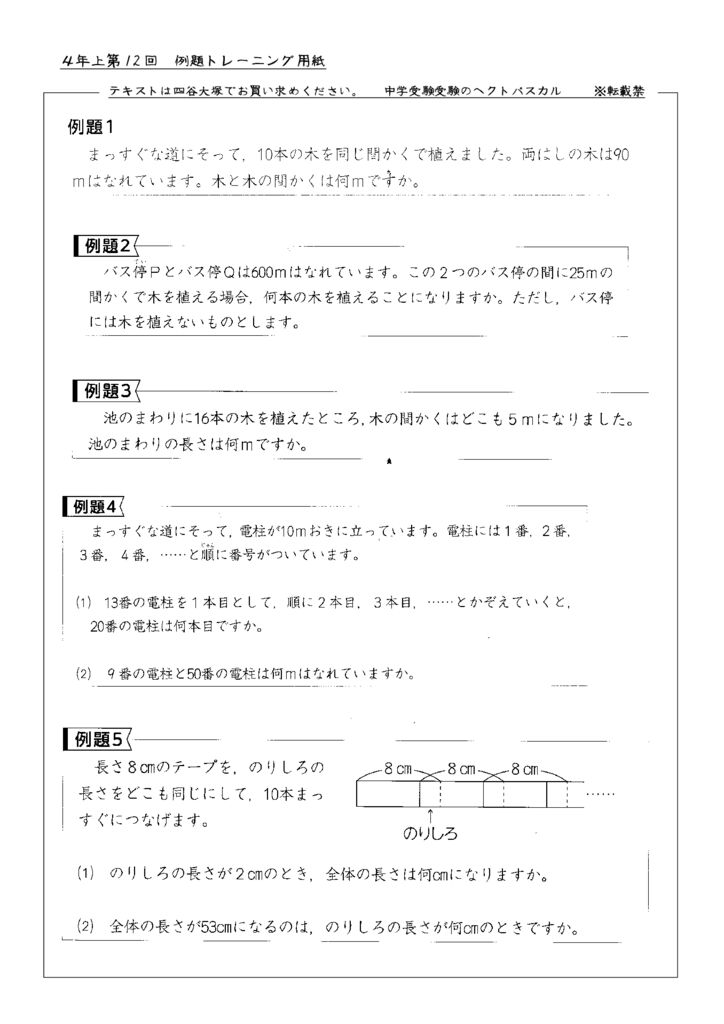 4年上第12回　例題トレーニング用紙
テキストは四谷大塚でお買い求めください。　中学受験受験のヘクトパスカル　※転載禁
例題1
まっすぐな道にそって，10本の木を同じ間かくで植えました。両はしの木は90
mはなれています。木と木の間かくは何mですか。
例題2
バス停PとバスQ停は600mはなれています。この2つのバス停の間に25mの
間かくで木を植える場合，何本の木を植えることになりますか。ただし，バス停
には木を植えないものとします。
例題3
池のまわりに16本の木を植えたところ，木の間かくはどこも5mになりました。
池のまわりの長さは何mですか。
例題4
まっすぐな道にそって，電柱が10mおきに立っています。電柱には1番，2番，
3番，4番，……と順に番号がついています。
(1)　13番の電柱を1本目として，順に2本目，3本目，……とかぞえていくと，
20番の電柱は何本目ですか。
(2)　9番の電柱と50番の電柱は何mはなれていますか。
例題5
長さ8cmのテープを，のりしろの
長さをどこも同じにして，10本まっ
すぐにつなげます。
8cm　8cm　8cm
……
のりしろ
(1)　のりしろの長さが2cmのとき，全体の長さは何cmになりますか。
(2)　全体の長さが53cmになるのは，のりしろの長さが何cmのときですか。